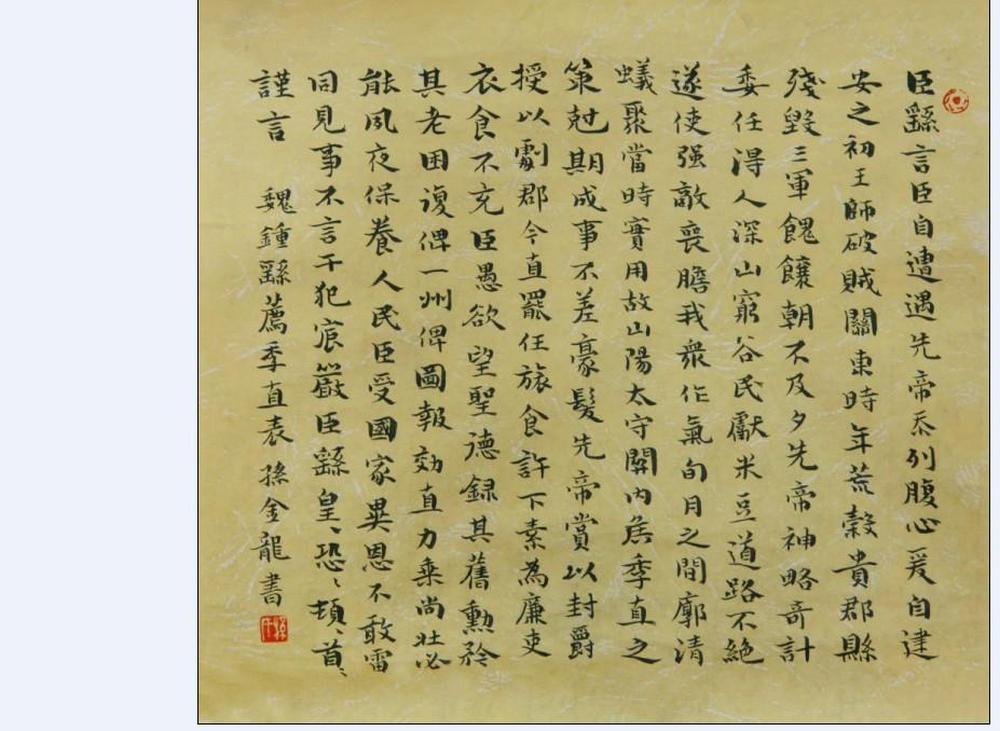 臣繇言臣自遭遇先帝忝列腹心爰自建
安之初王師破賊關東時年荒穀貴郡縣
殘毀三軍餽饟朝不及夕先帝神略奇計
委任得人深山窮谷民獻米豆道路不絕
遂使强敵喪膽我衆作氣旬月之間廓清
蟻聚當時實用故山陽太守關內侯季直之
策尅期成事不差豪髮先帝賞以封爵
授以劇郡今直罷任旅食許下素為廉吏
衣食不充臣愚欲望聖德録其舊勳矜
其老困復俾一州俾圖報効直力氣尚壯必
能夙夜保養人民臣受國家異恩不敢雷
同見事不言干犯宸嚴臣繇皇、恐、頓、首、
謹言 魏鍾繇薦季直表 孫金龍書